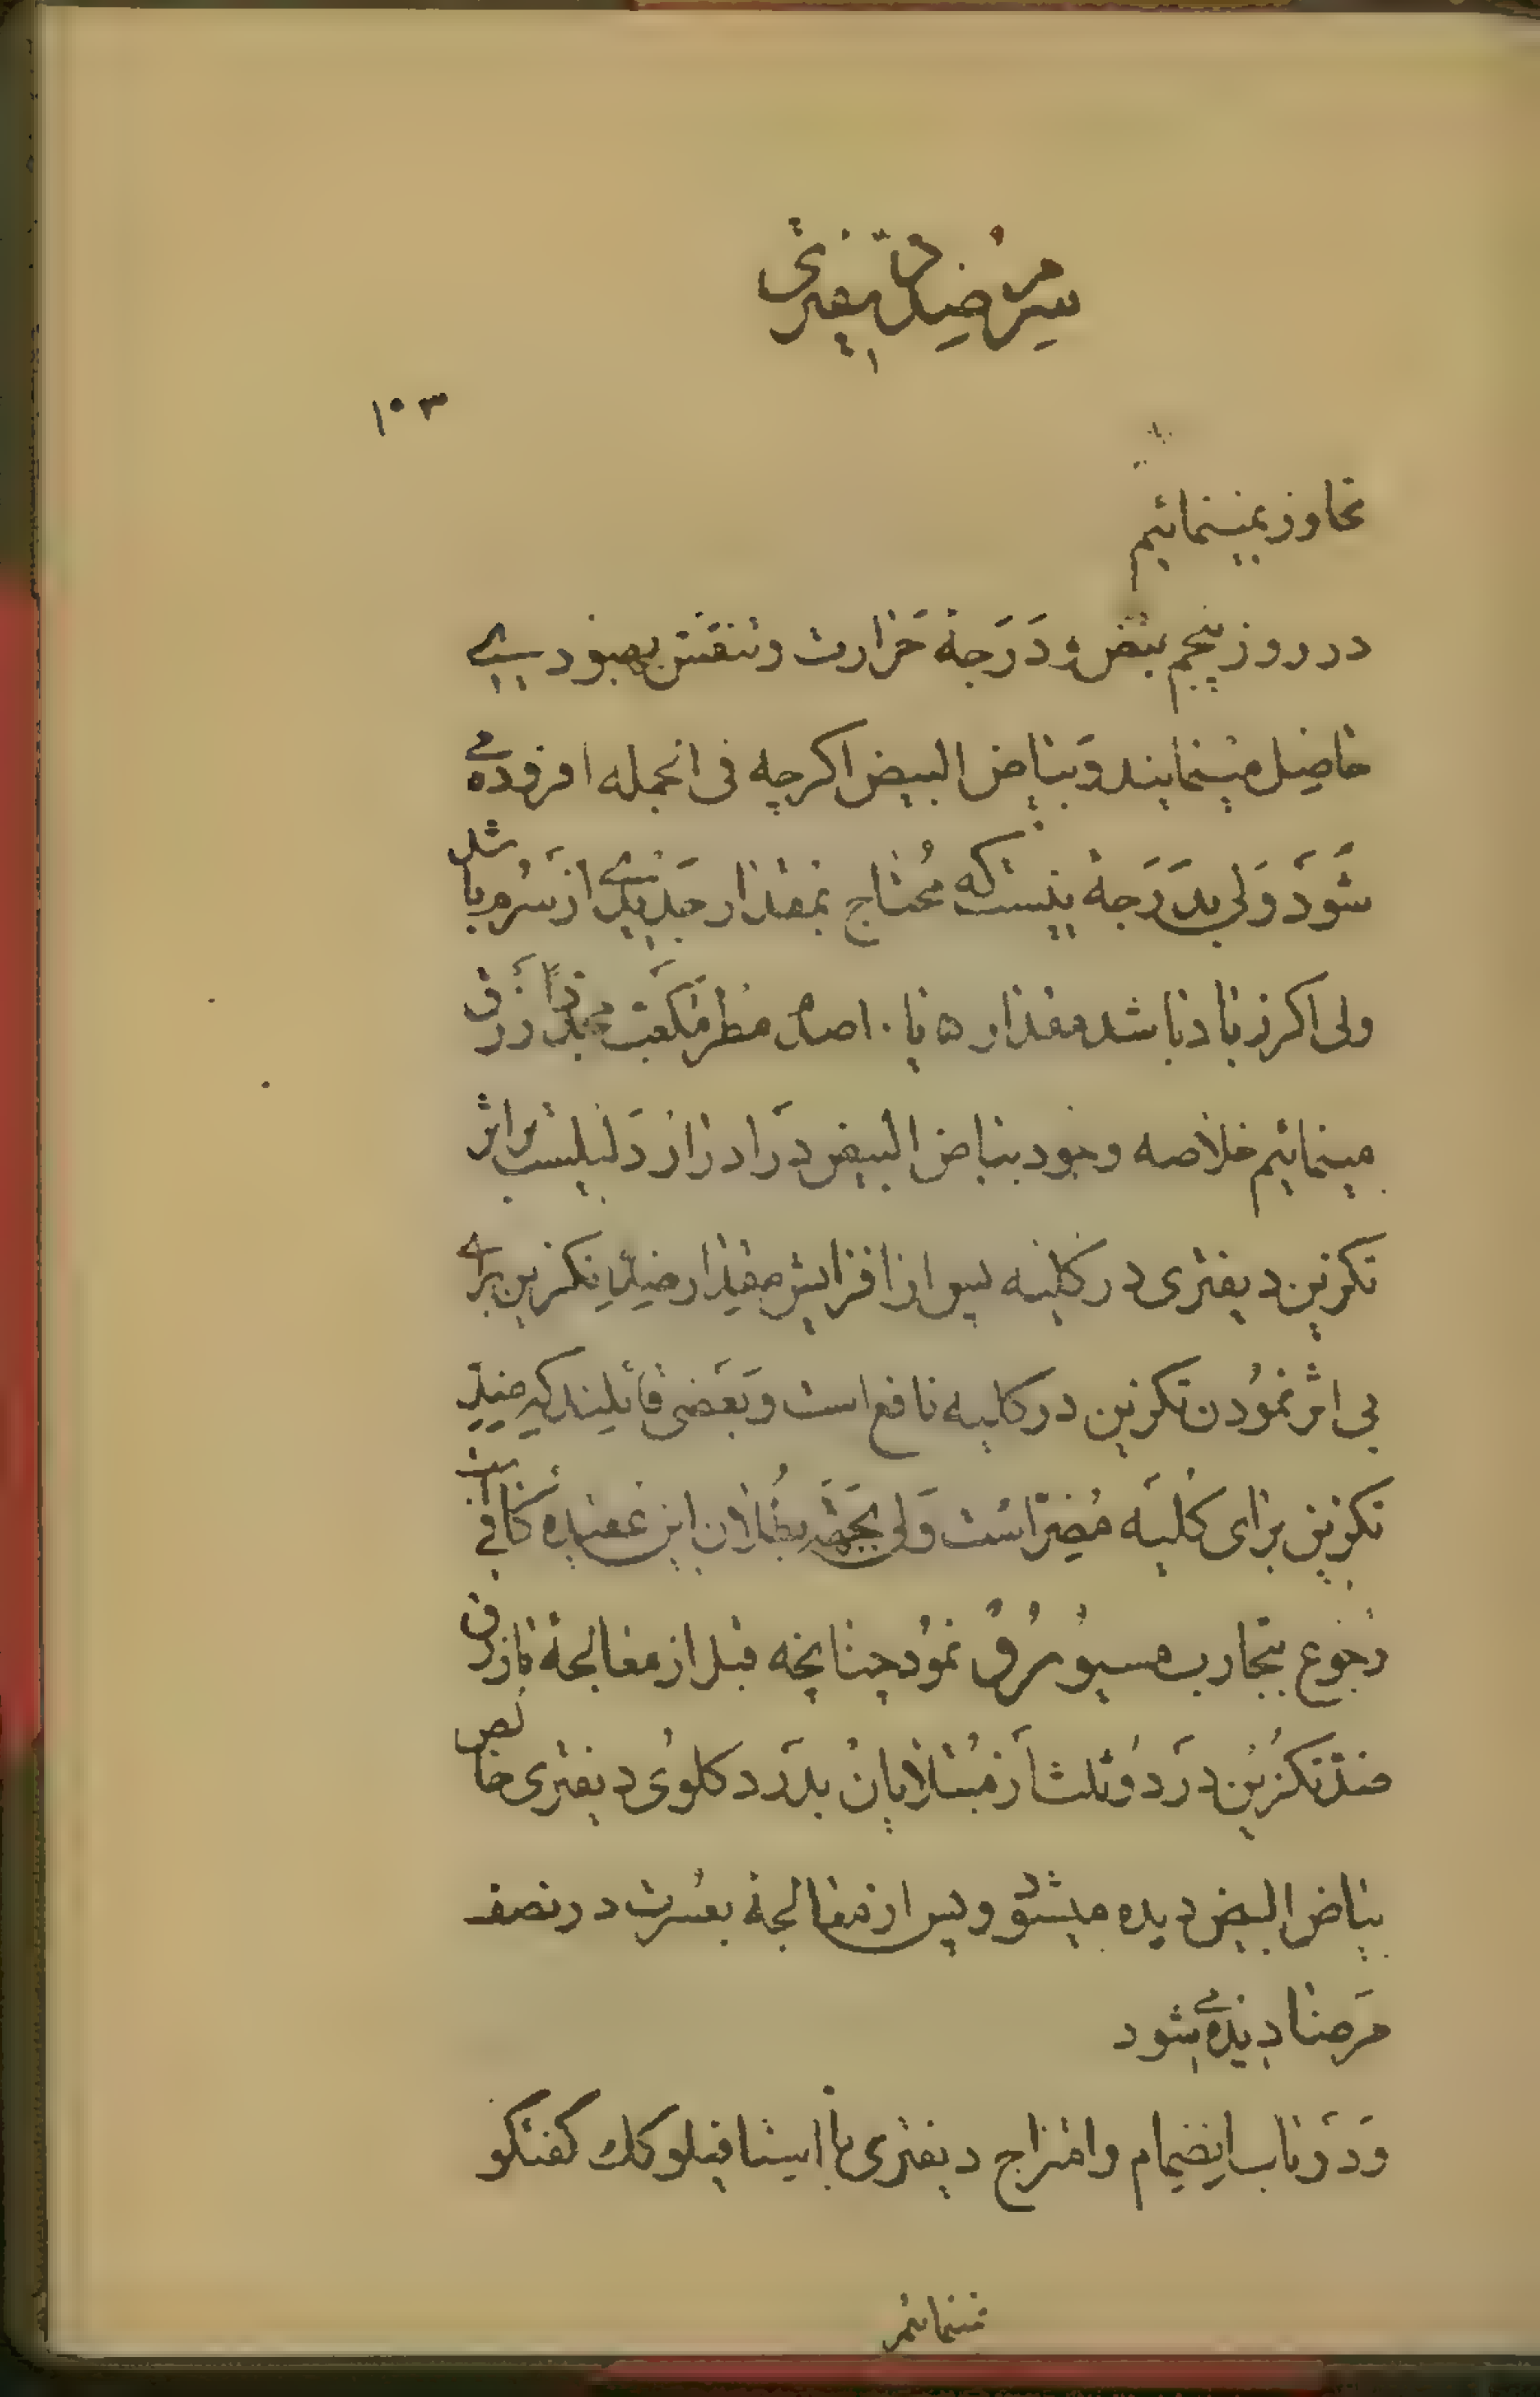 سرم ضد دیفتری
۱۰۳
تجاوز نمینمائیم
در روز پنجم نبض و درجهٔ حرارت و تنفس بهبود بسیاری
حاصل مینمایند و بیاض البیض اگرچه فی الجمله افزوده می
شود ولی بدرجهٔ نیست که محتاج بمقدار جدیدی از سرم باشد
ولی اگر زیاد باشد مقدار ۵ یا ۱۰ صدم مطر مکعب مجدداً زرق
مینمائیم خلاصه وجود بیاض البیض در ادرار دلیلست بر اثر
تکزین دیفتری در کلیه پس از افزایش مقدار ضد تکزین برای
بی اثر نمودن تکزین در کلیه نافع است و بعضی قائلیند که ضد
تکزین برای کلیه مضر است ولی بجهة بطلان این عقیده کافی است
رجوع بتجارب مسیو مرق نمود چنانچه قبل از معالجهٔ با زرق
ضد تکزین در دو ثلث از مبتلایان بدرد کلوی دیفتری خالص
بیاض البیض دیده میشود و پس از معالجهٔ بعسرت در نصف
مرضا دیده می شود
و در باب انضمام و امتزاج دیفتری با استافیلوکک گفتگو
مینمائیم